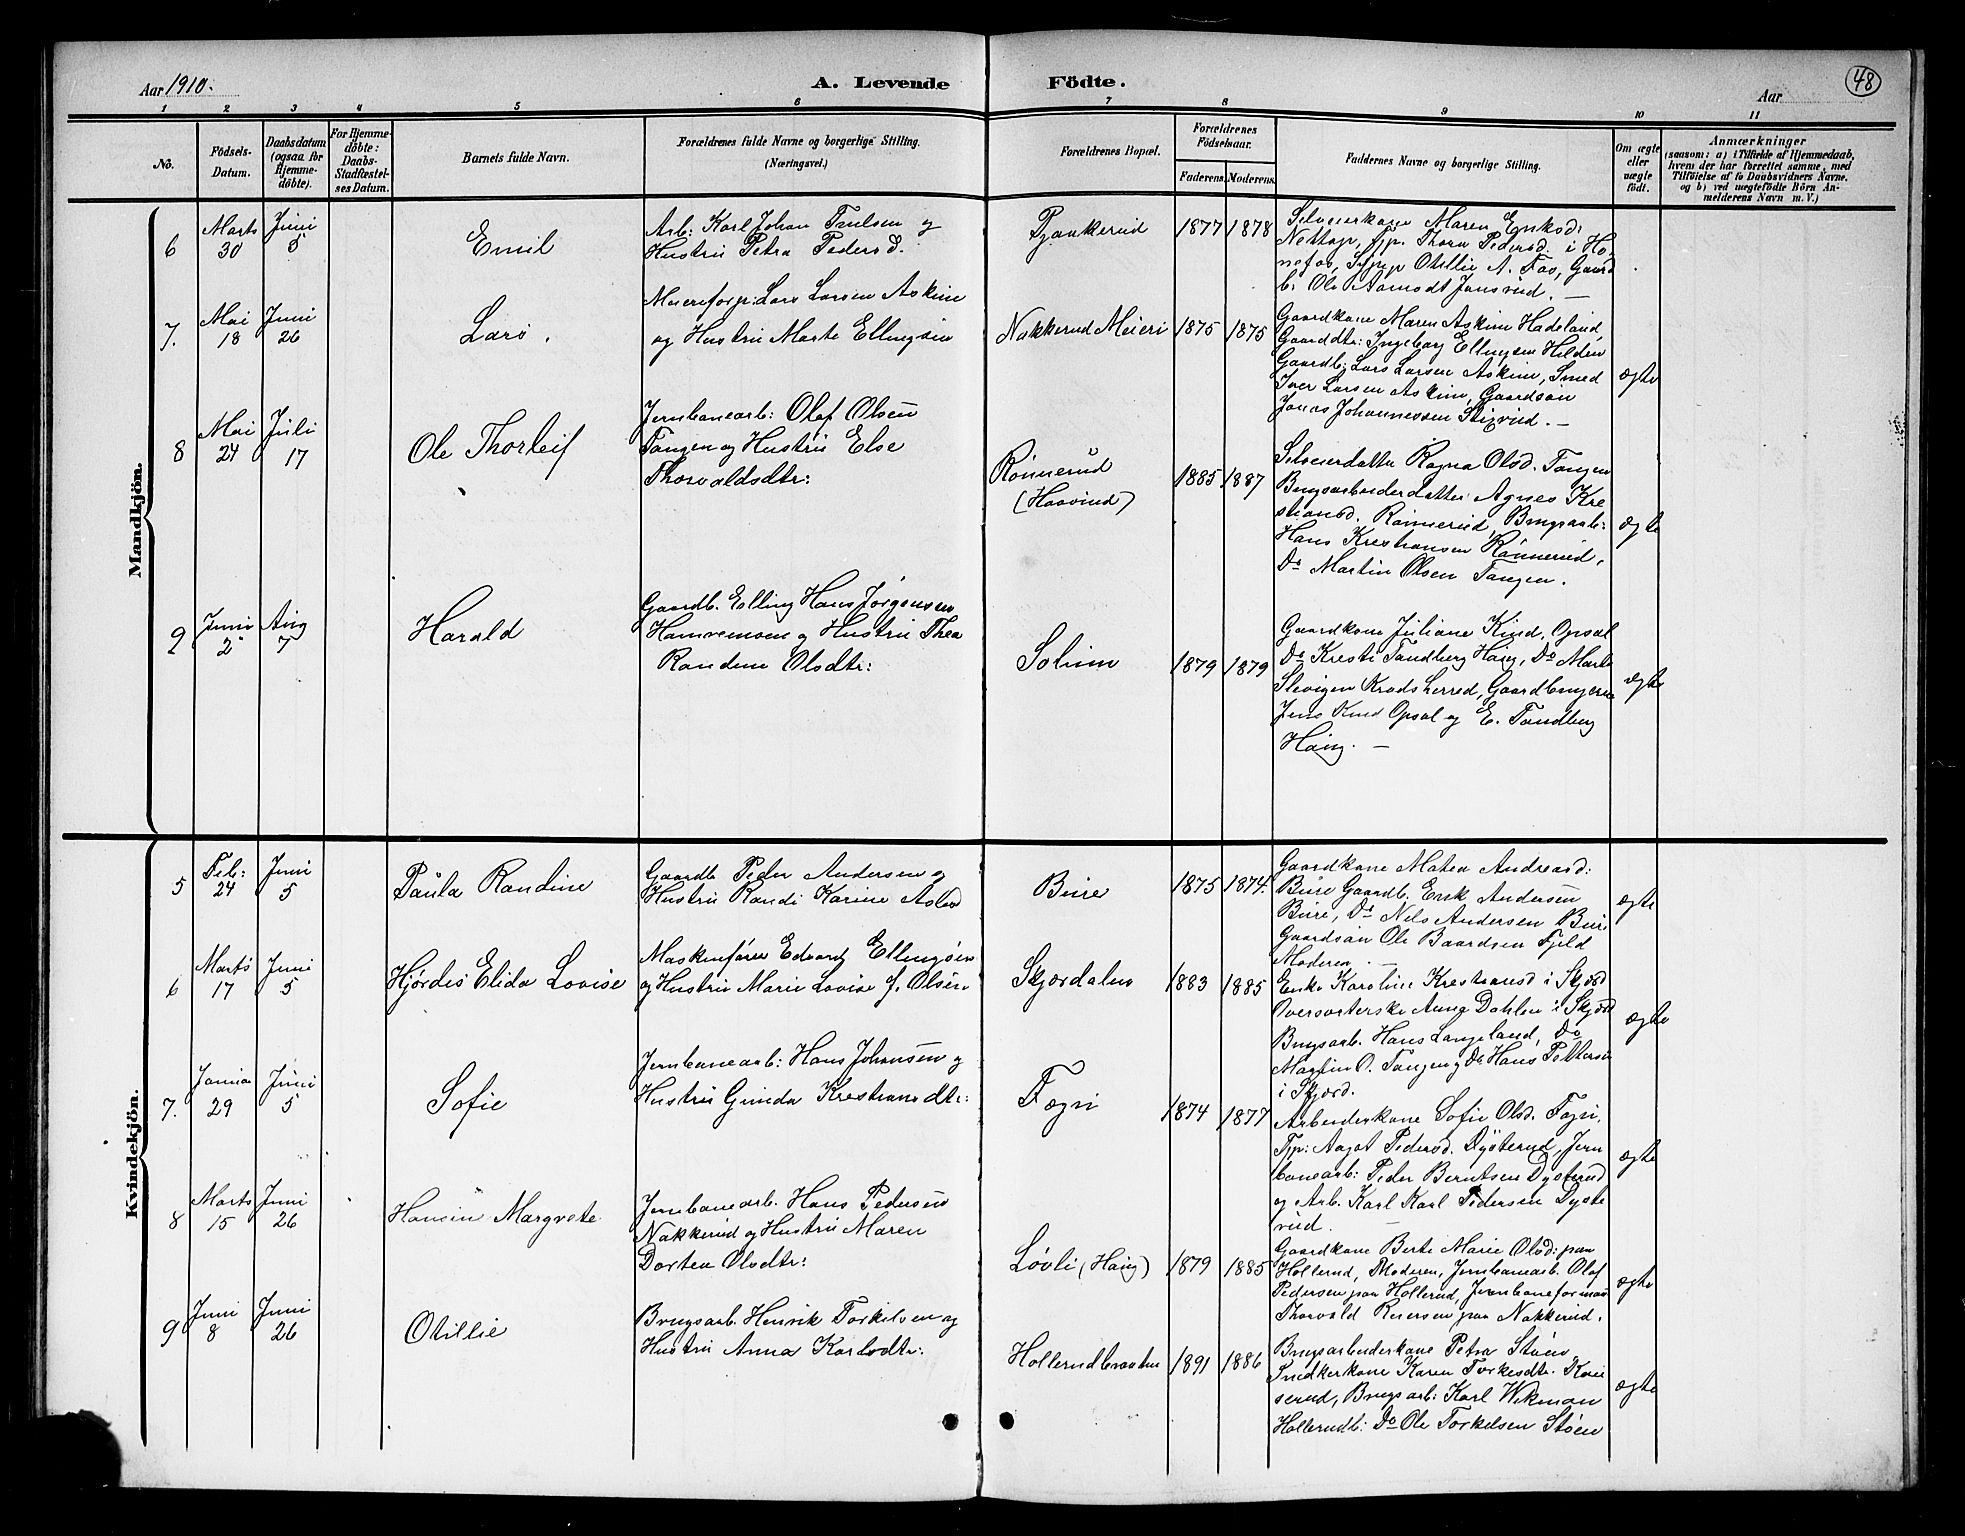 Aar 1910.
A. Levende Födte.
Aar
48
1 2 3 4 5 6 7 8 9 10 11
Nô.
Födsels-Datum.
Daabsdatum (ogsaa for Hjemme-döbte).
For Hjemme-döbte: Daabs-Stadfæstel-ses Datum.
Barnets fulde Navn.
Forældrenes fulde Navne og borgerlige Stilling.
(Næringsvei.)
Forældrenes Bopæl.
Forældrenes Födselsaar.
Faderens. Moderens.
Faddernes Navne og borgerlige Stilling.
Om ægte eller uægte födt.
Anmærkninger
(saasom: a) i Tilfælde af Hjemmedaab,
hvem der har forrettet samme, med
Tilföielse af to Daabsvidners Navne.
og b) ved uægtefödte Börn An-
melderens Navn m. V.)
Mandkjön.
6
Marts 30
Juni 5
Emil
Arb: Karl Johan Trulsen og
Hustru Petra Pedersd.
Pjaakerud
1877 1878
Selveierkone Maren Eriksd:
Nettop, Tjp. Thora Pedersd. i Hø-
nefos, Sypip Otillie A. Fos, Gaard
b: Ole Aamodt Jonsrud. —
7.
Mai 18
Juni 26
Lars.
Meieriforp: Lars Larsen Askim
og Hustru Marte Ellingsen
Nakkerud Meieri
1875 1875
Gaardkone Maren Askim Hadeland,
Gaarddtr: Ingeborg Ellingsen Hilden
Gaardb: Lars Larsen Askim, Smed
Iver Larsen Askim, Gaardsøn
Jonas Johannessen Stixrud. —
ægte
8
Mai 24
Juli 17
Ole Thorleif
Jernbanearb: Olaf Olsen
Tangen og Hustru Else
Thorvaldsdtr:
Rønnerud
(Haavrud)
1885 1887
Selveierdatter Ragna Olsd. Tangen
Brugsarbeiderdatter Agnes Kre
stiansd. Rønnerud, Brugsarb:
Hans Krestiansen Rønnerud,
Do Martin Olsen Tangen.
ægte
9
Juni 2
Aug 7
Harald
Gaardb. Elling Hans Jørgensen
Hamremoen og Hustru Thea
Randine Olsdtr:
Solum
1879 1879
Gaardkone Juliane Kind, Opsal
Do Kresti Tandberg Haug, Do Marte
Slevigen Krødsherred, Gaardbrugerne
Jens Kind Opsal og E. Tandberg
Haug. —
ægte
Kvindekjön.
5
Feb: 24
Juni 5
Paula Randine
Gaardb Peder Andersen og
Hustru Randi Karine Aslesd
Bure
1875 1874.
Gaardkone Matea Andreasd:
Bure Gaardb. Erik Andersen
Bure, Do Nels Andersen Bure
Gaardsøn Ole Baardsen Fjeld
Moderen —
ægte
6
Marts 17
Juni 5
Hjørdis Elida Lovise
Maskinfører Edvard Ellingsen
og Hustru Marie Lovise f. Olsen
Skjærdalen
1883 1885
Enke Karoline Krestiansd i Skjærd
Oversorterske Anna Dahlen i Skjærd
Brugsarb. Hans Langeland, Do
Martin O. Tangen og Do Hans Pettersen
i Skjærd.
ægte
7.
Janua 29
Juni 5
Sofie
Jernbanearb: Hans Johansen og
Hustru Gunda Krestiansdtr:
Fægri
1874 1877
Arbeiderkone Sofie Olsd. Fægri,
Tjp: Aagot Pedersd. Dysterud, Jern
banearb: Peder Berntsen Dysterud
og Arb. Karl Karl Pedersen Dyste
rud. —
ægte
8
Marts 15
Juni 26
Hansine Margrete
Jernbanearb. Hans Pedersen
Nakkerud og Hustru Maren
Dortea Olsdtr:
Løvli (Haug)
1879 1885
Gaardkone Berte Marie Olsd: paa
Hollerud, Moderen, Jernbanearb. Olaf
Pedersen paa Hollerud, Jernbaneformand
Thorvald Reiersen paa Nakkerud.
ægte
9
Juni 8
Juni 26
Otillie
Brugsarb. Henrik Torkilsen og
Hustru Anna Karlsdtr:
Hollerudbraaten
1891 1886
Brugsarbeiderkone Petra Støen
Snedkerkone Karen Torkesdtr. Kove
serud, Brugsarb: Karl Wikman
Hollerudb: Do Ole Torkelsen Støen
ægte